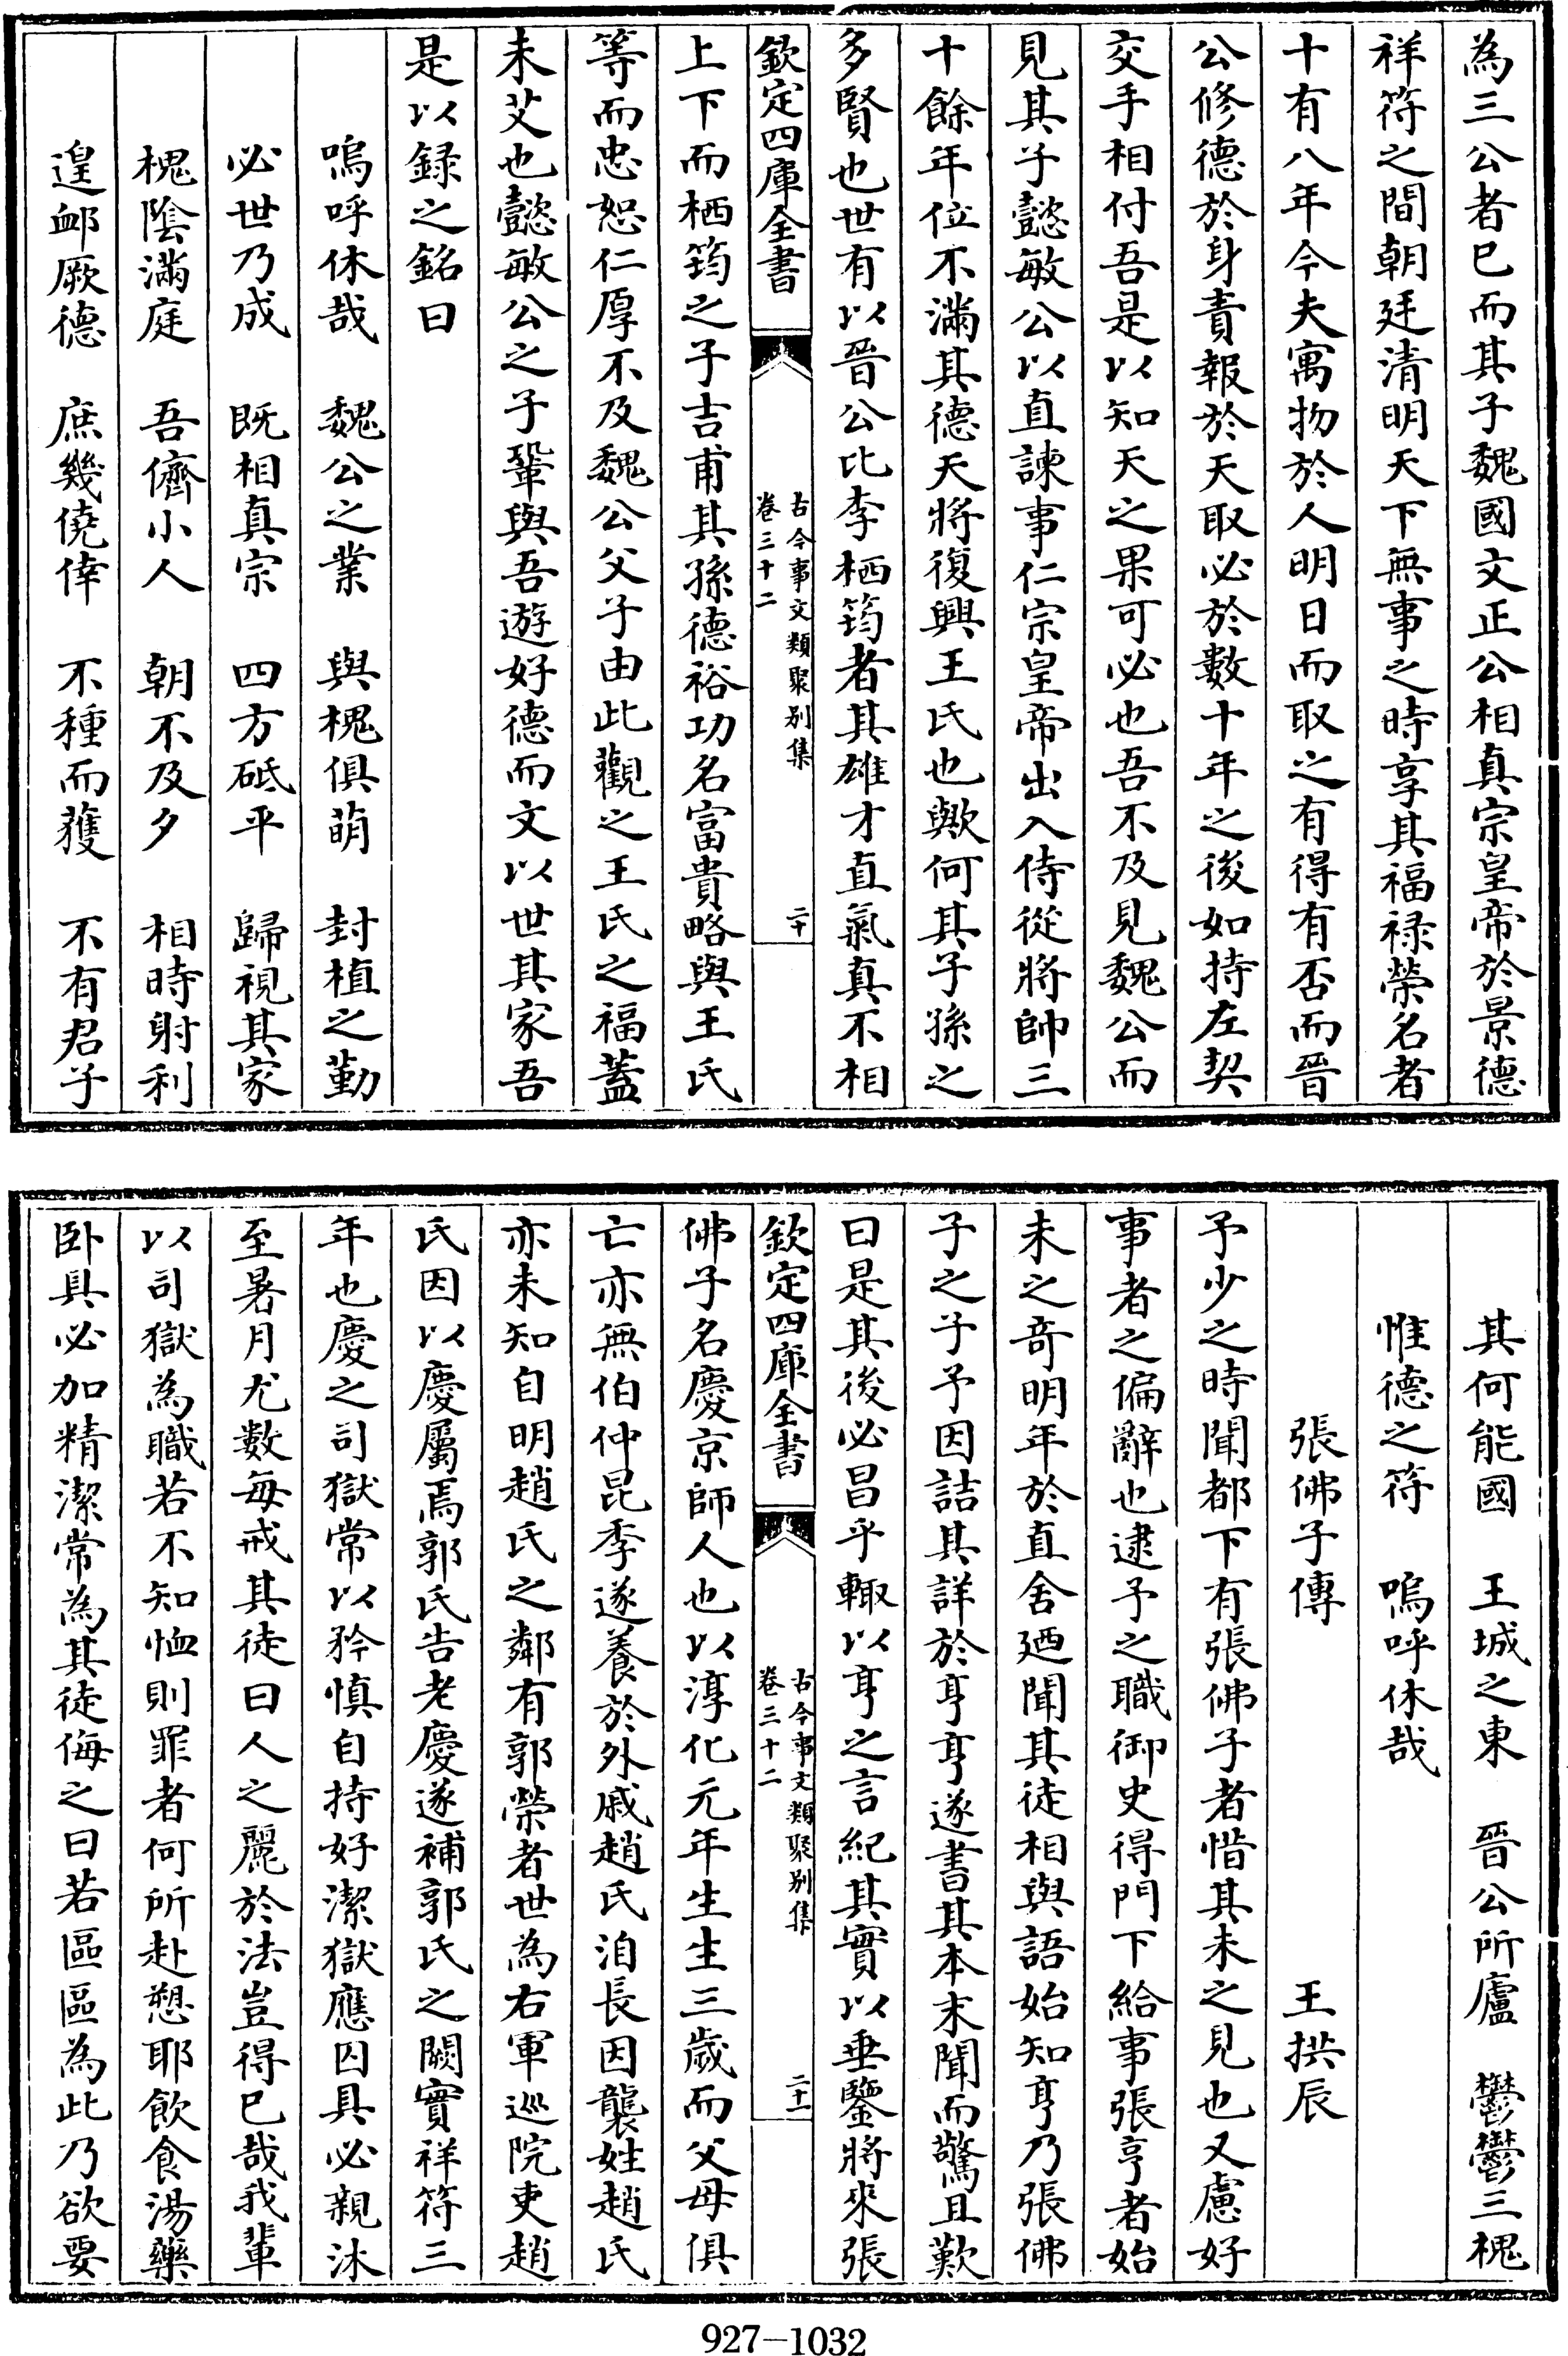 為三公者已而其子魏國文正公相真宗皇帝於景德
祥符之間朝廷清明天下無事之時享其福禄榮名者
十有八年今夫寓物於人明日而取之有得有否而晉
公修德於身責報於天取必於數十年之後如持左契
交手相付吾是以知天之果可必也吾不及見魏公而
見其子懿敏公以直諫事仁宗皇帝出入侍從將帥三
十餘年位不滿其德天將復興王氏也歟何其子孫之
多賢也世有以晉公比李栖筠者其雄才直氣真不相
欽定四庫全書
古今事文類聚别集
卷三十二
二十
上下而栖筠之子吉甫其孫德裕功名富貴略與王氏
等而忠恕仁厚不及魏公父子由此觀之王氏之福蓋
未艾也懿敏公之子鞏與吾遊好德而文以世其家吾
是以録之銘曰
嗚呼休哉　魏公之業　與槐俱萌　封植之勤
必世乃成　既相真宗　四方砥平　歸視其家
槐隂滿庭　吾儕小人　朝不及夕　相時射利
遑䘏厥德　庶幾僥倖　不種而蓷　不有君子
其何能國　王城之東　晉公所廬　鬱鬱三槐
惟德之符　嗚呼休哉
張佛子傳　王拱辰
予少之時聞都下有張佛子者惜其未之見也又慮好
事者之偏辭也逮予之職御史得門下給事張亨者始
未之奇明年於直舍廼聞其徒相與語始知亨乃張佛
子之子予因詰其詳於亨亨遂書其本末聞而驚且歎
曰是其後必昌乎輙以亨之言紀其實以垂鑒將來張
欽定四庫全書
古今事文類聚别集
卷三十二
二十一
佛子名慶京師人也以淳化元年生生三歲而父母俱
亡亦無伯仲昆季遂養於外戚趙氏洎長因襲姓趙氏
亦未知自明趙氏之鄰有郭榮者世為右軍巡院吏趙
氏因以慶屬焉郭氏告老慶遂補郭氏之闕實祥符三
年也慶之司獄常以矜慎自持好潔獄應囚具必親沐
至暑月尤數每戒其徒曰人之麗於法豈得已哉我輩
以司獄為職若不知恤則罪者何所赴愬耶飲食湯藥
卧具必加精潔常為其徒侮之曰若區區為此乃欲要
927-1032